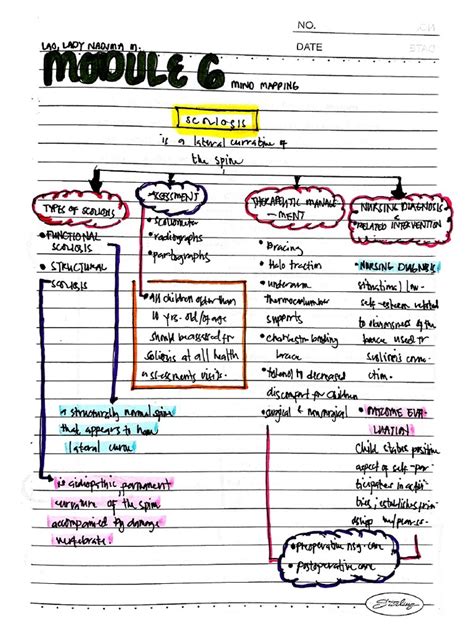 NO.
DATE
LAO, LADY NADJMA M.
MODULE 6
MIND MAPPING
SCOLIOSIS
is a lateral curvature of
the spine
TYPES OF SCOLIOSIS
• FUNCTIONAL
SCOLIOSIS
• STRUCTURAL
SCOLIOSIS
ASSESSMENT
• scoliometer
• radiographs
•
• All children older than
10 yrs. old/of age
should be assessed for
scoliosis at all health
assessments visits.
THERAPEUTIC MANAGE
-MENT
• Bracing
• Halo traction
• underarm
supports
• charleston bending
brace
to decreased
discomfort for children
• surgical & nonsurgical
NURSING DIAGNOSIS
&
RELATED INTERVENTION
• NURSING DIAGNOSIS
situational low
self-esteem related
to of the
brace used for
scoliosis
• OUTCOME EVA
LUATION
Child states positive
aspect of self-par
ticipates in activi
ties; establishes
is structurally normal spine
that appears to have
lateral curve
is idiopathic, permanent
curvature of the spine
accompanied by damage
vertebrae.
• preoperative nsg. care
• postoperative care
Sterling